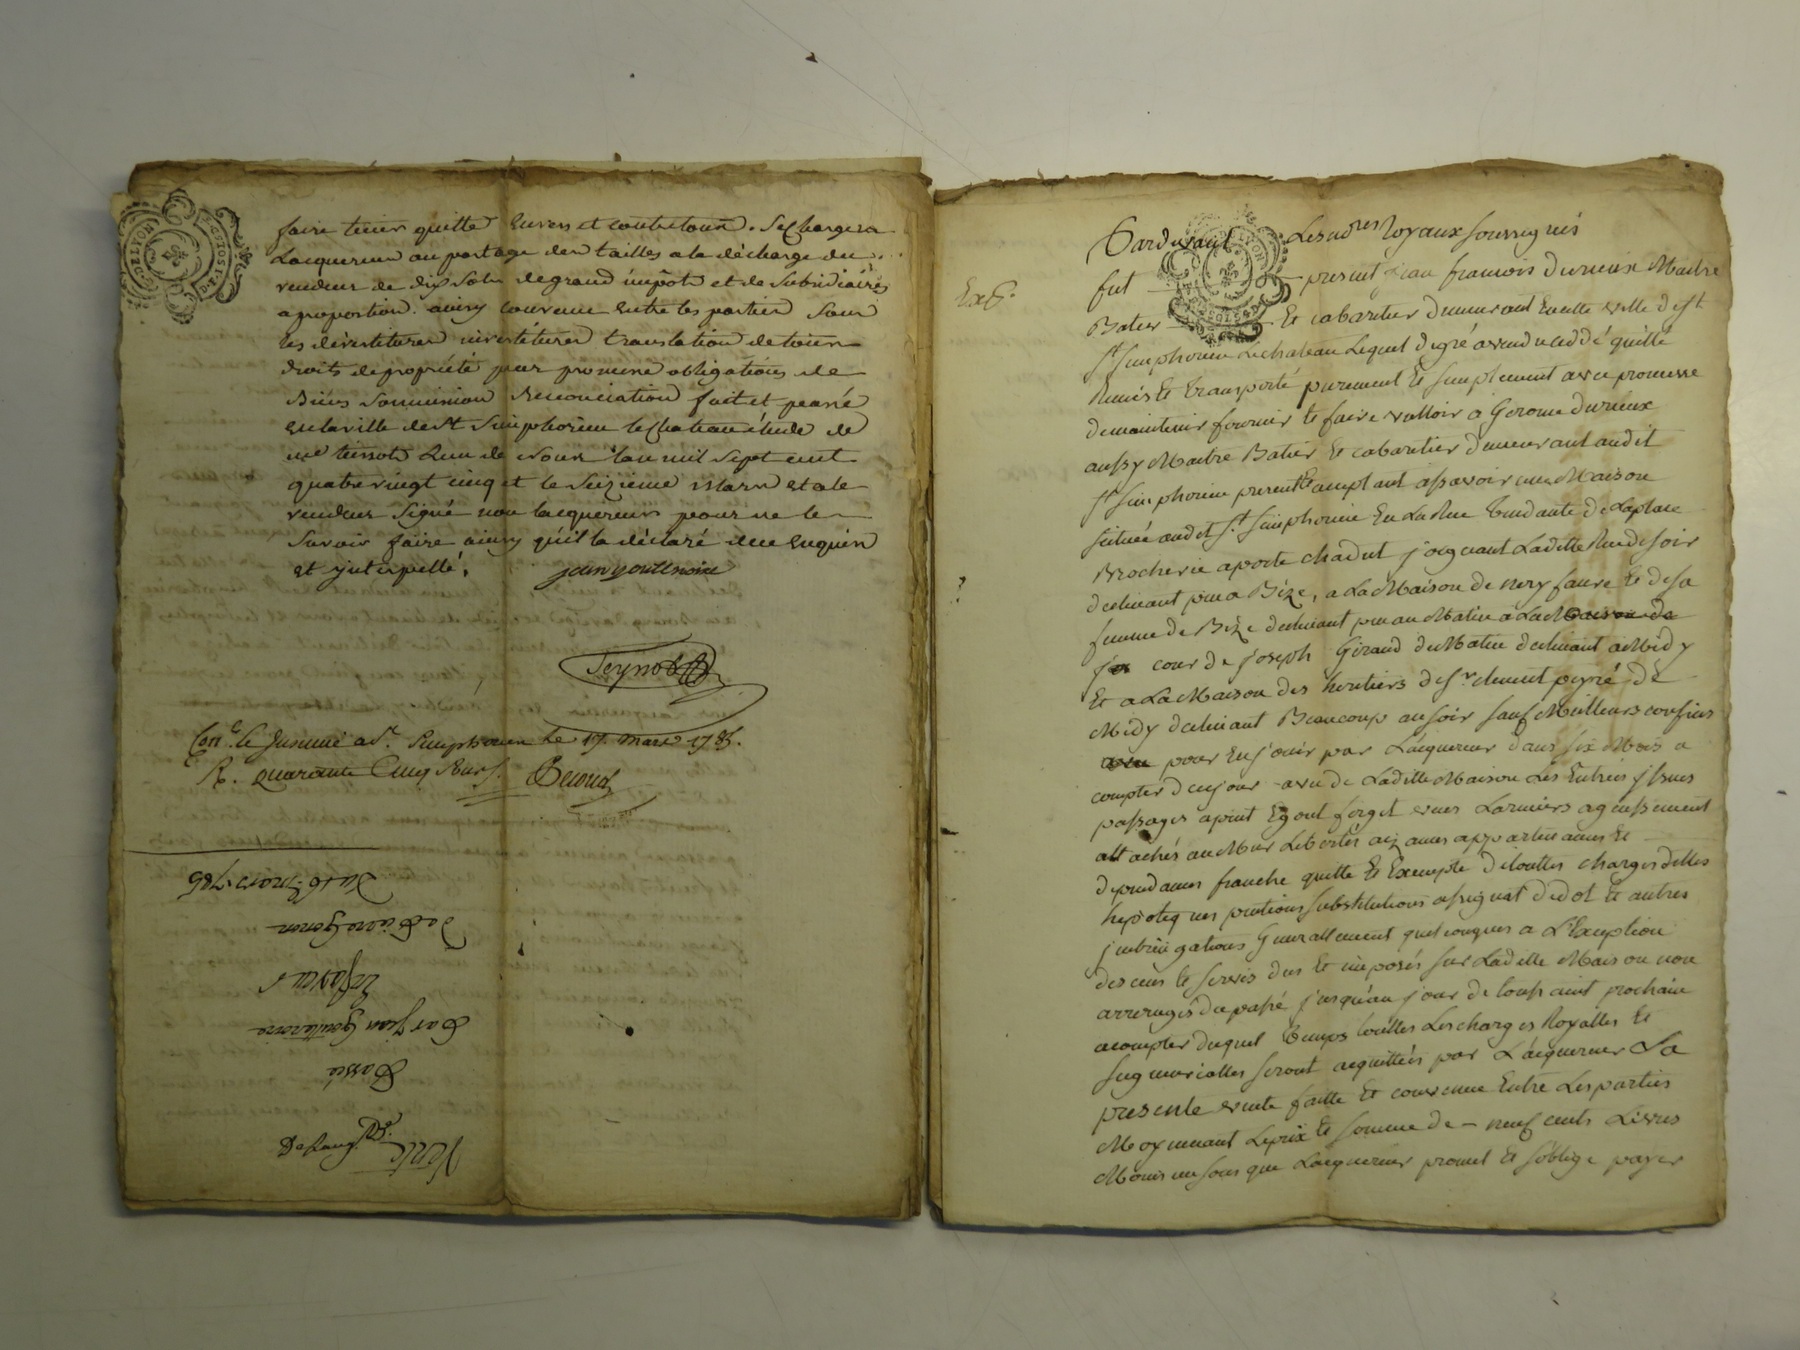 faire tenir quitte Envers et contre tous. Se Chargera
Lacquereur au portage des tailles a la décharge du
vendeur de dix Sols de grand impôt et de Subsidiaires
a proportion. ainsy Convenu Entre les parties Sous
les devestitures investitures translation de tous
droits de propriété pour promesse obligations de
Biens Soumission Renonciation fait et passé
En la ville de St Simphorien le Chateau étude de
me teinot L'un de Nous l'an mil Sept cent
quatre vingt cinq et le Seizieme Mars Et a le
vendeur Signé non lacquereur pour ne le
Savoir faire ainsy qu'il la déclaré de ce Enquis
et interpellé,
jean goutenoire
Teynot
Conlé. & Insinué a St. Simphorien Le 17. mars 1785.
R. Quarante Cinq Sols
Du 16 mars 1785
De Pierre Gonon
En faveur
Par Jean Gouttenoire
Passée
Vente
Pardevant Les nores Royaux Soussignés
Exé.
fut present jean francois durieux Maitre
Batier Et cabaretier demeurant En cette ville de St
St Simphorien Le chateau Lequel de gré a vendu ceddé quitté
Remis Et transporté purement Et simplement avec promesse
de maintenir fournir Et faire valloir a Gerome durieux
aussy Maitre Batier Et cabaretier demeurant audit
St Simphorien present Et acceptant assavoir une Maison
scituée audit St Simphorien En La Rue Tendante de La place
Brocherie a porte chadut joignant La ditte Rue de soir
declinant peu a Bize, a La Maison de nery faure Et de sa
femme de Bize declinant peu au Matin a La Maison de
cour de joseph Giraud de Matin declinant a Midy
Et a La Maison des heritiers de Sr. clement peyré de
Midy declinant Beaucoup au soir sauf Meilleurs confins
pour En jouir par L'acquereur dans six Mois a
compter de ce jour avec de La ditte Maison Les Entrées yssues
passages a point Egout forget vues Larmiers agencissement
attachés au Mur Libertés aizances appartenances Et
dependances franche quitte Et Exempte de touttes charges dettes
hepoteques pentions substitutions assignat de dot Et autres
jmbrigations Generallement quelconques a L'Exception
des cens Et servis dus Et imposés sur La ditte Maison non
arreragés du passé jusqu'au jour de toussaint prochain
a compter duquel Temps touttes Les charges Royalles Et
seigneurialles seront acquittées par L'acquereur La
presente vente faitte Et convenue Entre Les parties
Moyennant Le prix Et somme de – neuf cents Livres
Moins un sous que L'acquereur promet Et s'oblige payer